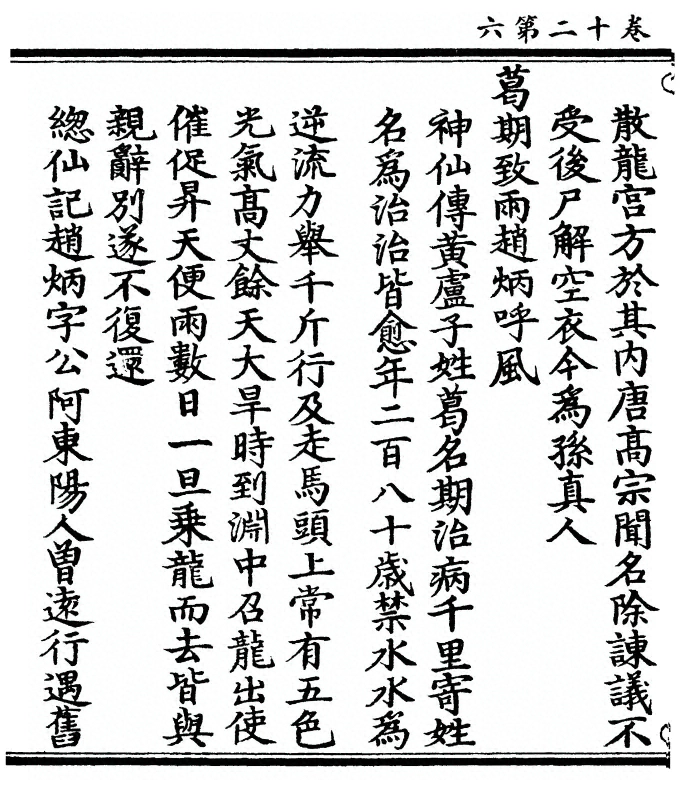 卷十二第六
散龍宮方於其內唐髙宗聞名除諫議不
受後尸解空衣今為孫真人
葛期致雨趙炳呼風
神仙傳黃盧子姓葛名期治病千里寄姓
名爲治治皆愈年二百八十歲禁水水爲
逆流力舉千斤行及走馬頭上常有五色
光氣髙丈餘天大旱時到淵中召龍出使
催促昇天便雨數日一旦乗龍而去皆與
親辭別遂不復還
緫仙記趙炳字公阿東陽人曽逺行遇舊